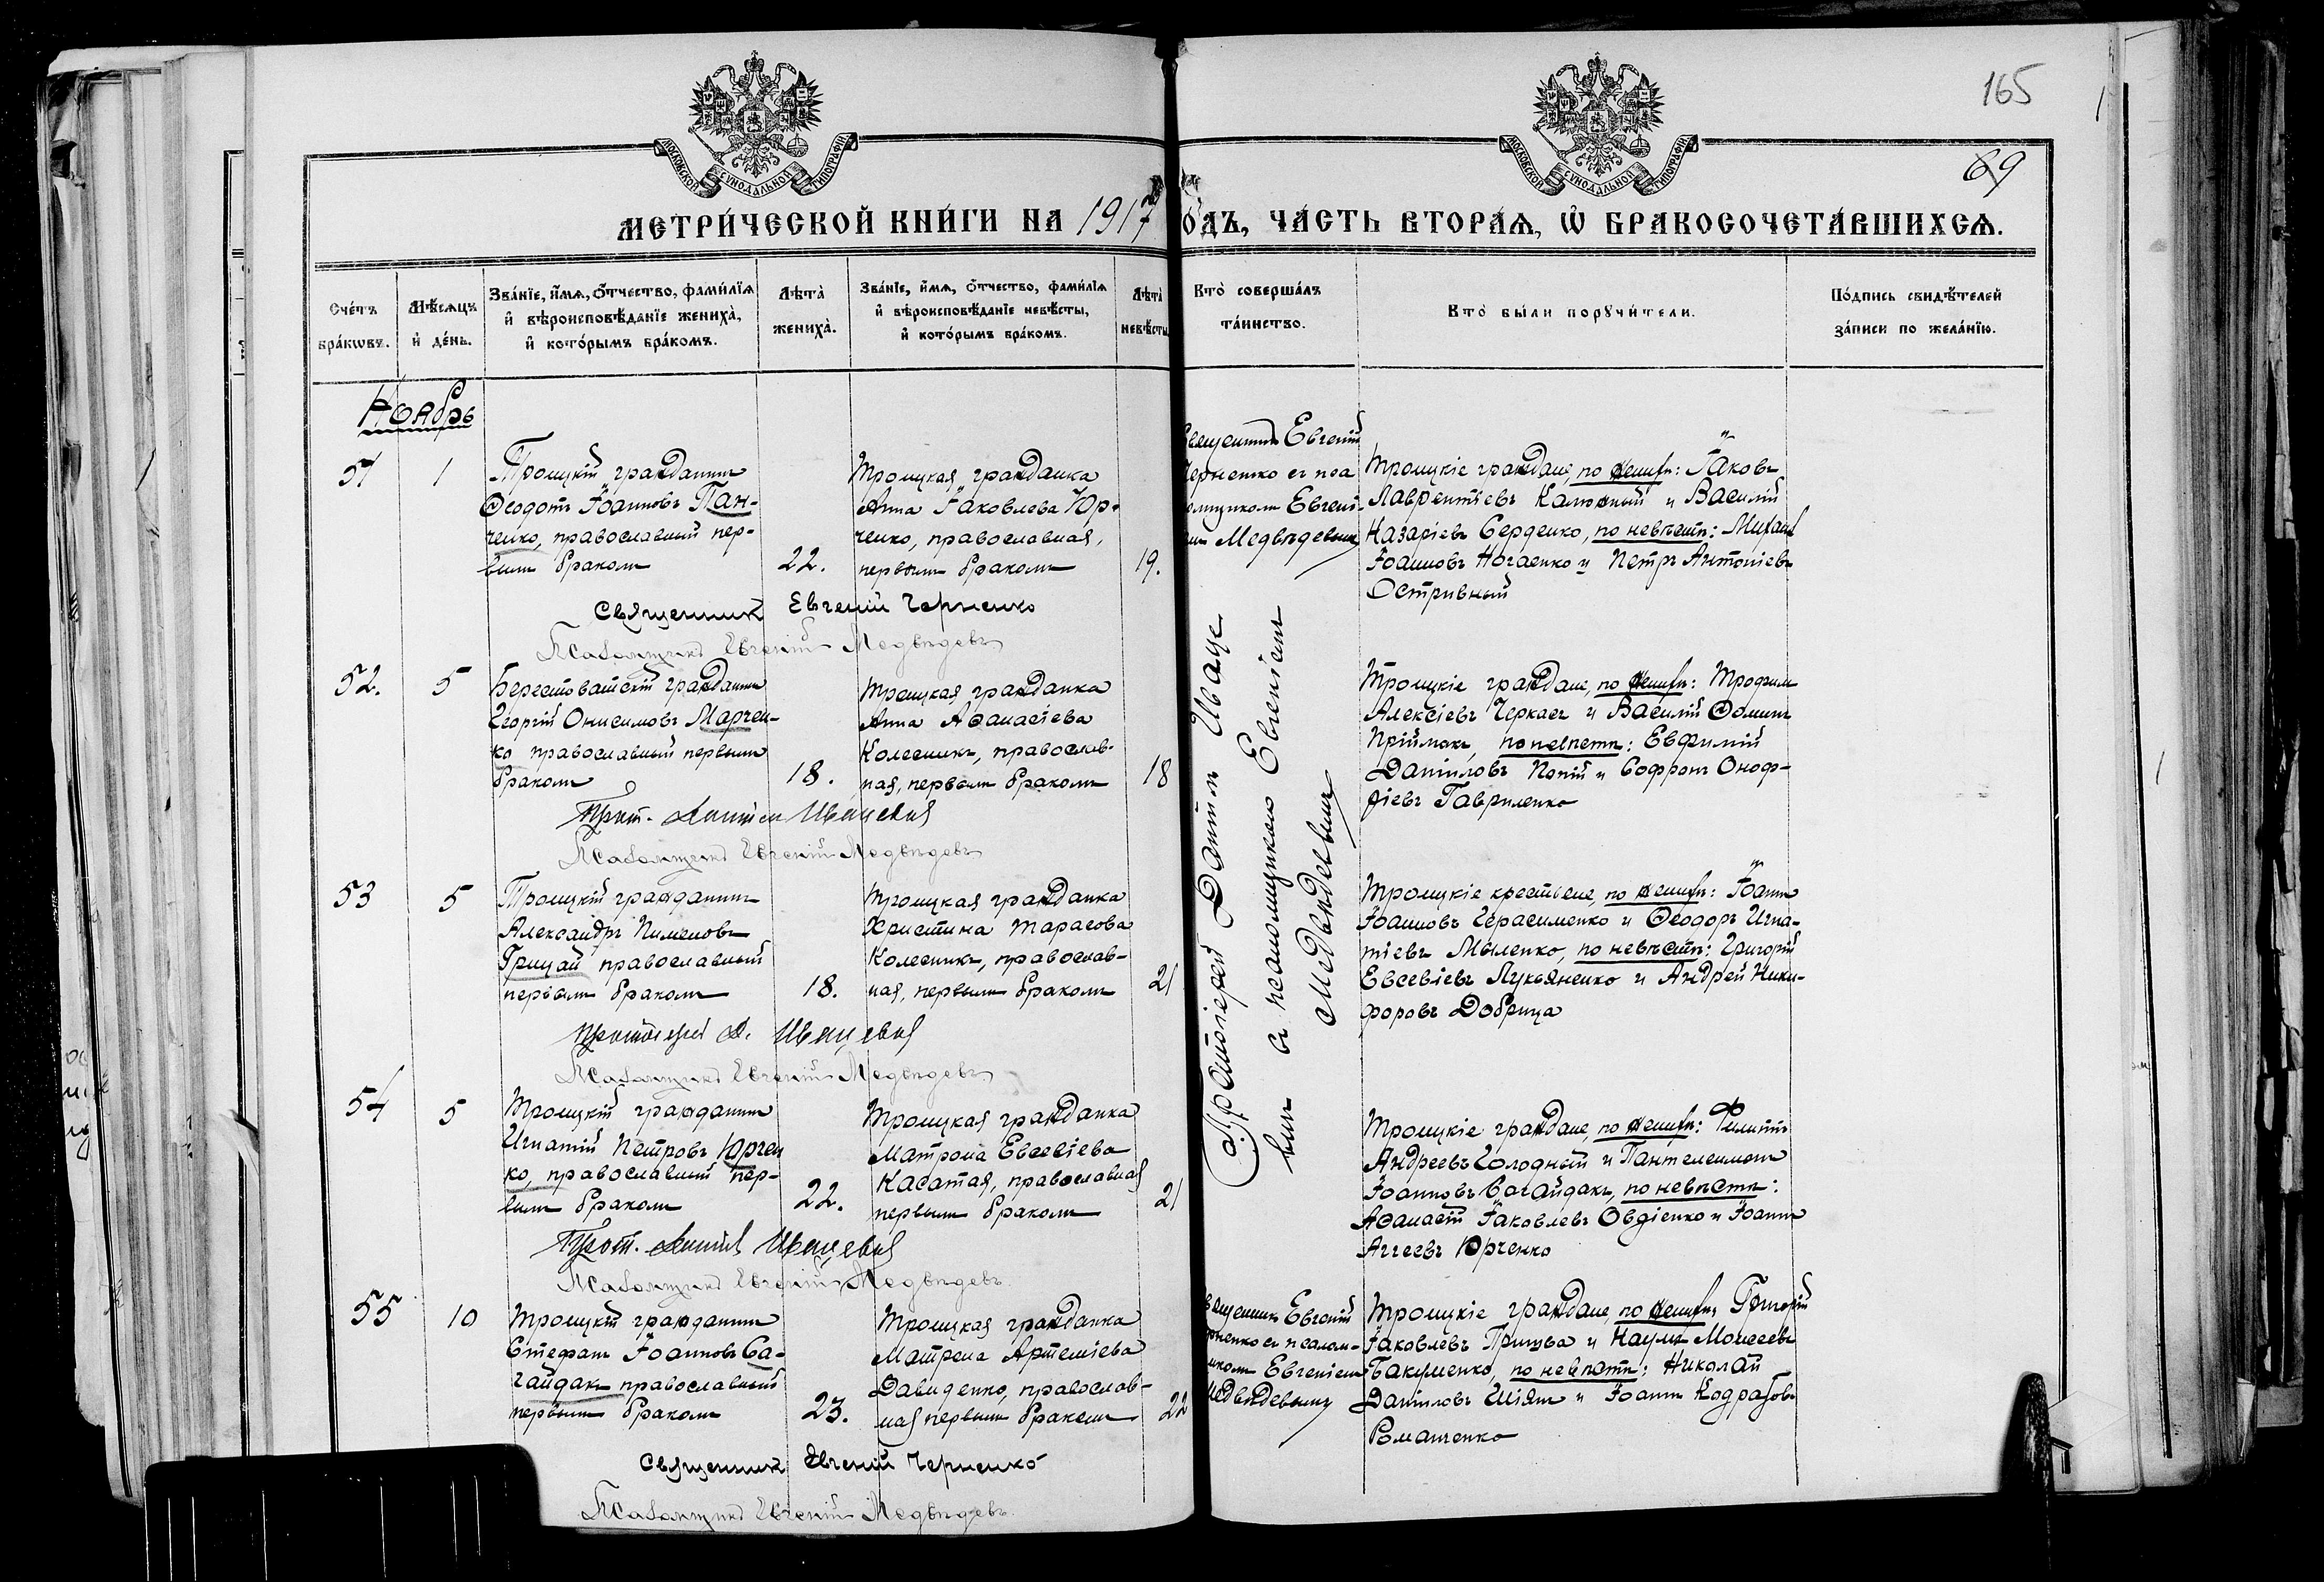 165
69
МОСКОВСКОЙ СУНОДАЛЬНОЙ ТИПОГРАФІИ
МОСКОВСКОЙ СУНОДАЛЬНОЙ ТИПОГРАФІИ
МЕТРИ́ЧЕСКОЙ КНИ́ГИ НА 1917
О́ДЪ, ЧА́СТЬ ВТОРА́Ѧ, Ѿ БРАКОСОЧЕТА́ВШИХСѦ.
Сче́тъ бра́кѡвъ.
Мѣ́сяцъ и҆ де́нь.
Зва́нїе, и҆́мѧ, ѻ҆́тчество, фами́лїѧ и҆ вѣроисповѣ́данїе жениха̀, и҆ кото́рымъ бра́комъ.
Лѣта̀ жениха̀.
Зва́нїе, и҆́мѧ, ѻ҆́тчество, фами́лїѧ и҆ вѣроисповѣ́данїе невѣ́сты, и҆ кото́рымъ бра́комъ.
Лѣта̀ невѣ́сты
Кто̀ соверша́лъ та́инство.
Кто̀ бы́ли порꙋчи́тели.
По́дпись свидѣ́телей за́писи по жела́нїю.
Ноябрь
51
1
Троицкій гражданинъ
Ѳеодотъ Іоанновъ Пан-
ченко, православный пер-
вымъ бракомъ
22.
Троицкая гражданка
Анна Іаковлева Юр-
ченко, православная,
первымъ бракомъ
19.
Священникъ Евгеній
Черненко съ пса
ломщикомъ Евгені-
емъ Медвѣдевымъ
Троицкіе граждане, по женихѣ: Іаковъ
Лаврентіевъ Калюжный и Василій
Назаріевъ Серденко, по невѣстѣ: Михаилъ
Іоанновъ Ногаенко и Петръ Антоніевъ
Остривный
Священникъ Евгеній Черненко
Псаломщикъ Евгеній Медвѣдевъ
52.
5
Берестоватскій гражданинъ
Георгій Онисимовъ Марчен-
ко православный первымъ
бракомъ
18.
Троицкая гражданка
Анна Аѳанасіева
Колесникъ, православ-
ная, первымъ бракомъ
18
Троицкіе граждане, по женихѣ: Трофимъ
Алексіевъ Черкасъ и Василій Ѳоминъ
Пріймакъ, по невѣстѣ: Евфимій
Даніиловъ Попій и Софронъ Оноф-
ріевъ Гавриленко
Прот. Даніилъ Иваницкій
Псаломщикъ Евгеній Медвѣдевъ
Протоіерей Даніилъ
съ псаломщикомъ Евгеніемъ
Медвѣдевымъ
53
5
Троицкій гражданинъ
Александръ Пименовъ
Грицай православный
первымъ бракомъ
18.
Троицкая гражданка
Христина Тарасова
Колесникъ, православ-
ная, первымъ бракомъ
21
Троицкіе крестьяне, по женихѣ: Іоаннъ
Іоанновъ Герасименко и Ѳеодоръ Игна-
тіевъ Мыленко, по невѣстѣ: Григорій
Евсевіевъ Лукьяненко и Андрей Ники-
форовъ Добрица
Протоіерей Д.
Псаломщикъ Евгеній Медвѣдевъ
54
5
Троицкій гражданинъ
Игнатій Петровъ Юрчен
ко, православный пер-
вымъ бракомъ
22.
Троицкая гражданка
Матрона Евсевіева
Касатая, православная
первымъ бракомъ
21
Троицкіе граждане, по женихѣ: Филиппъ
Андреевъ Голодный и Пантелеимонъ
Іоанновъ Сагайдакъ, по невѣстѣ:
Аѳанасій Іаковлевъ Овдіенко и Іоаннъ
Аггеевъ Юрченко
Прот. Даніилъ
Псаломщикъ Евгеній Медвѣдевъ
55
10
Троицкій гражданинъ
Стефанъ Іоанновъ Са-
гайдакъ православный
первымъ бракомъ
23.
Троицкая гражданка
Матрена Артеміева
Давиденко, православ-
ная первымъ бракомъ
22
вященникъ Евгеній
рненко съ псалом-
икомъ Евгеніемъ
Медвѣдевымъ
Троицкіе граждане, по женихѣ Григорій
Іаковлевъ и Наумъ Моисеевъ
Бакуменко, по невѣстѣ: Николай
Даніиловъ Шіянъ и Іоаннъ Кодратовъ
Ромашенко
Священникъ Евгеній Черненко
Псаломщикъ Евгеній Медвѣдевъ